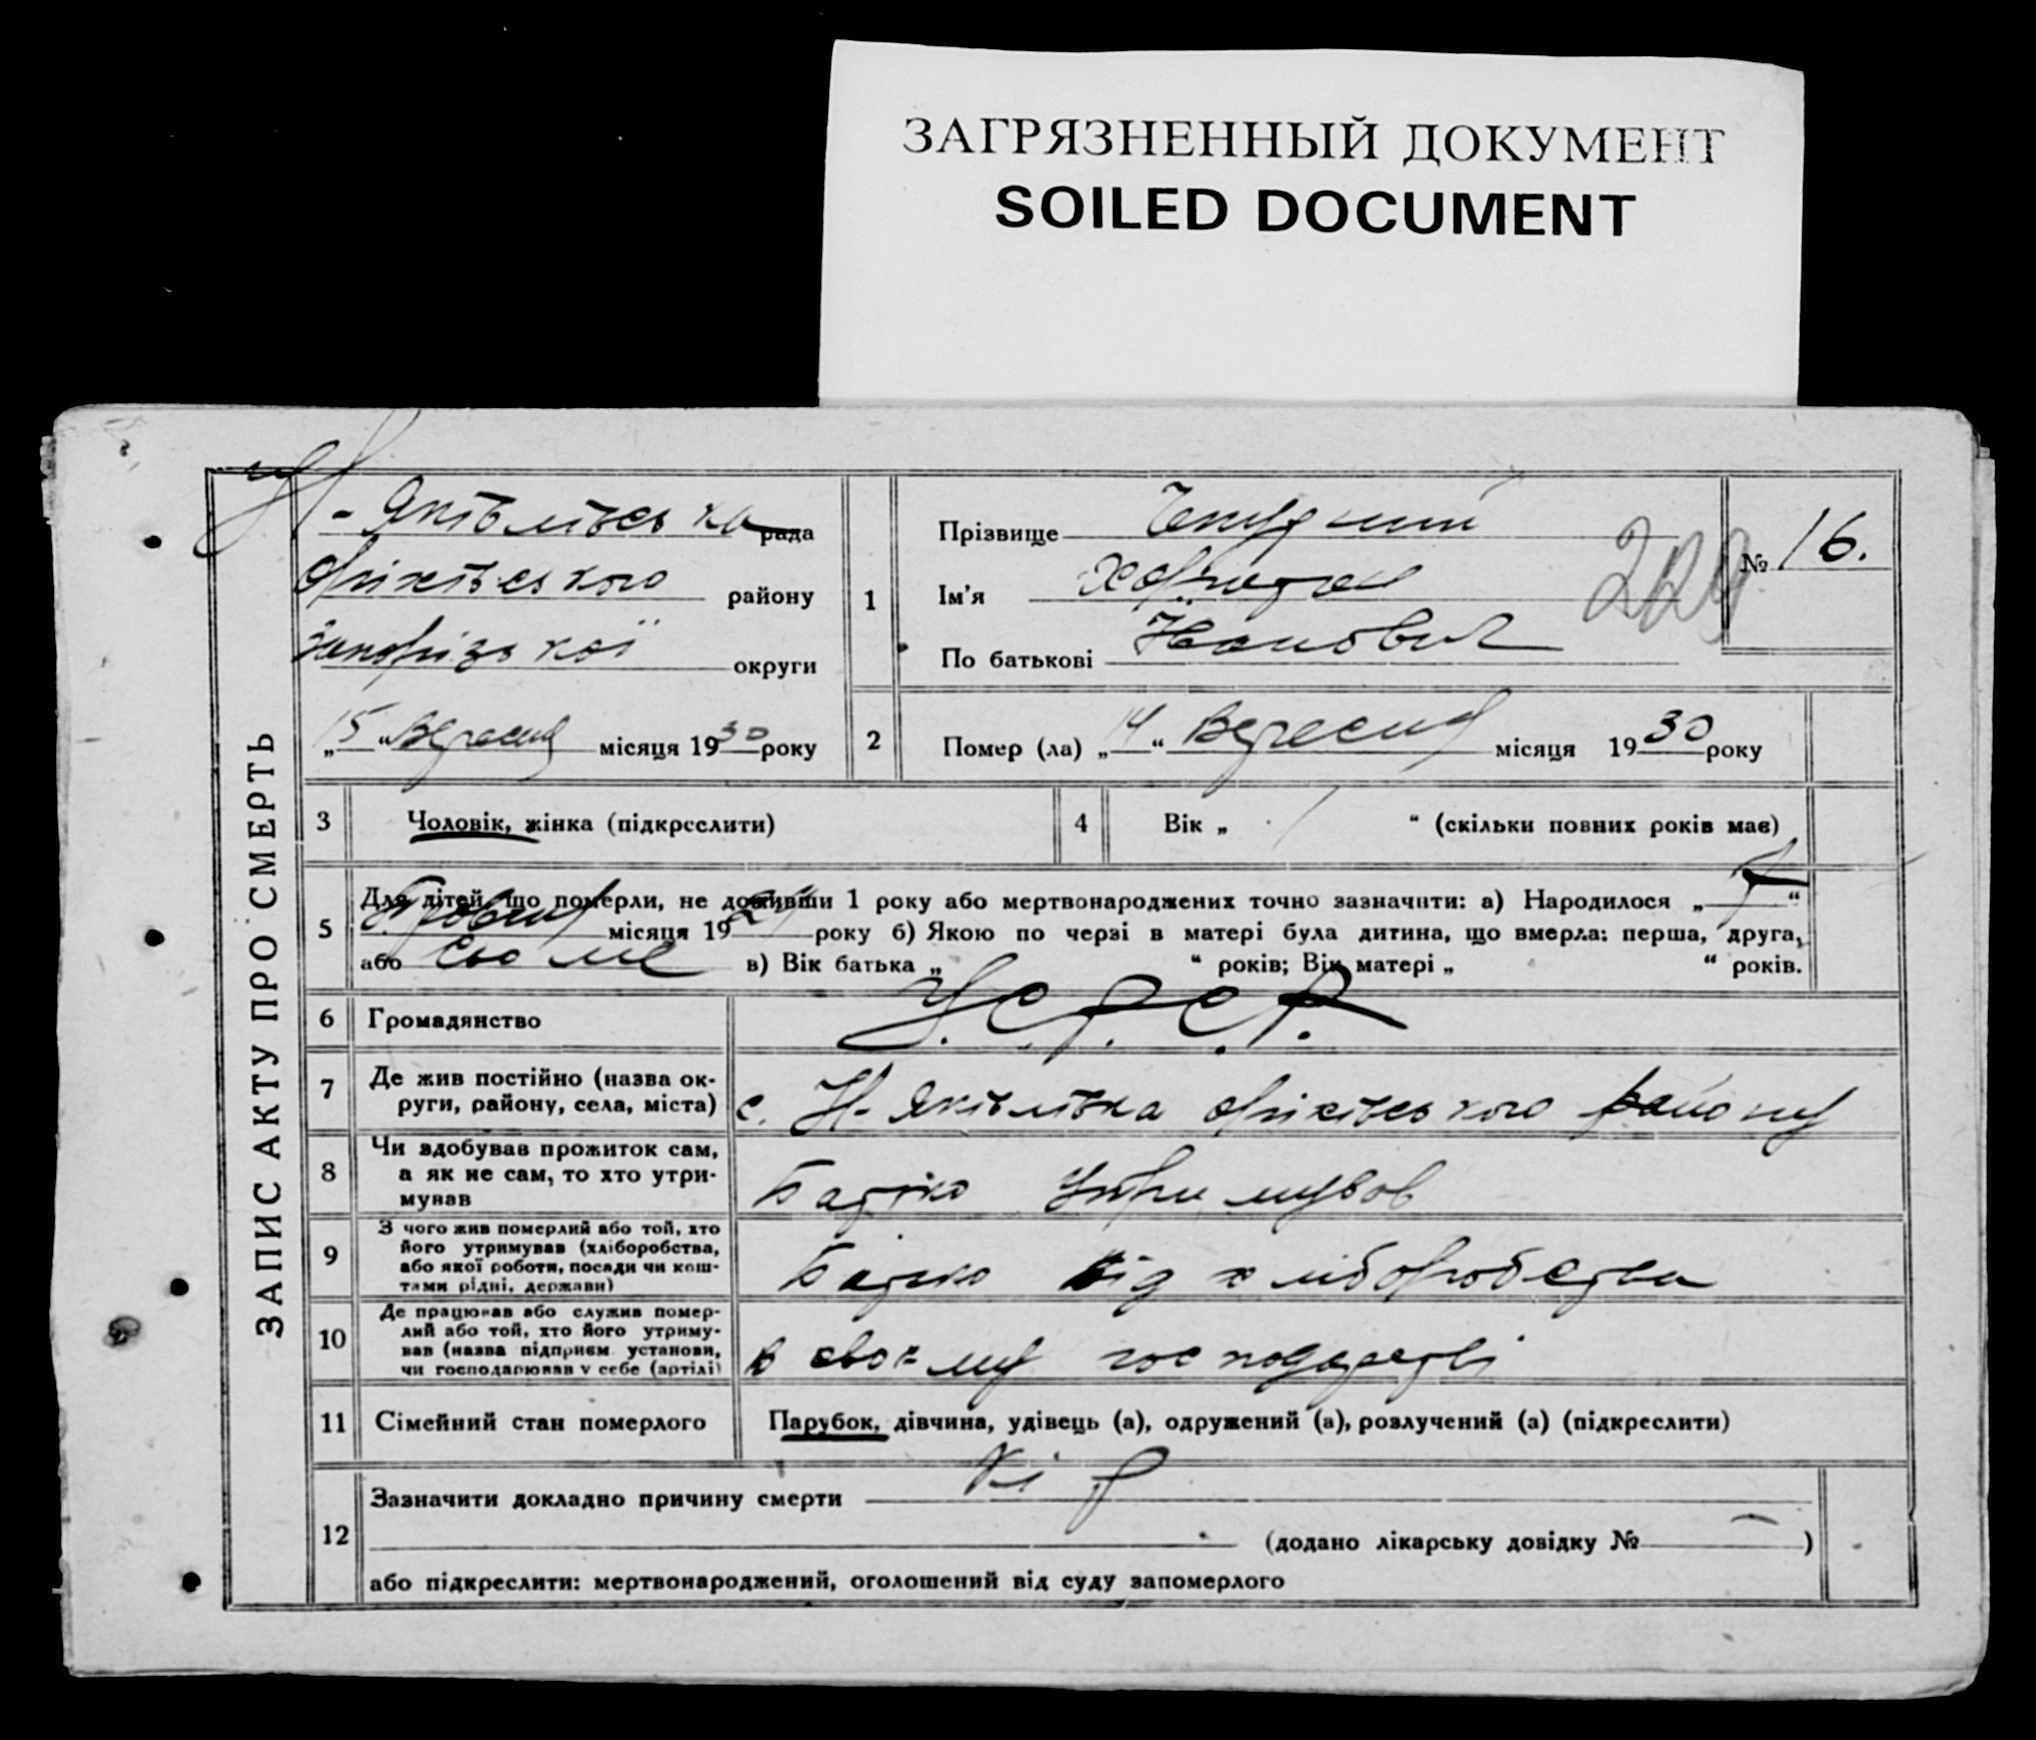 ЗАГРЯЗНЕННЫЙ ДОКУМЕНТ
SOILED DOCUMENT
ЗАПИС АКТУ ПРО СМЕРТЬ
Н-Яківлівська рада
Оріхівського району
Запорізької округи
„15“ Вересня місяця 1930 року
1
Прізвище
Ім'я
По батькові
229
№ 16.
2
Помер (ла) „14“ Вересня місяця 1930 року
3 Чоловік, жінка (підкреслити)
4 Вік „ 1 “ (скільки повних років має)
5 Для дітей, що померли, не доживши 1 року або мертвонароджених точно зазначити: а) Народилося „7“
місяця 1929 року б) Якою по черзі в матері була дитина, що вмерла: перша, друга,
або сьоме в) Вік батька „ “ років; Вік матері „ “ років.
6 Громадянство У.С.Р.С.Р.
7 Де жив постійно (назва округи, району, села, міста) с. Н-Яківлівка Оріхівського району
8 Чи здобував прожиток сам, а як не сам, то хто утримував Батько утримував
9 З чого жив померлий або той, хто його утримував (хліборобства, або якої роботи, посади чи коштами рідні, держави) Батько від хліборобства
10 Де працював або служив померлий або той, хто його утримував (назва підприєм. установи, чи господарював у себе (артілі) в своєму господарстві
11 Сімейний стан померлого Парубок, дівчина, удівець (а), одружений (а), розлучений (а) (підкреслити)
12 Зазначити докладно причину смерти Кір
(додано лікарську довідку № — )
або підкреслити: мертвонароджений, оголошений від суду запомерлого